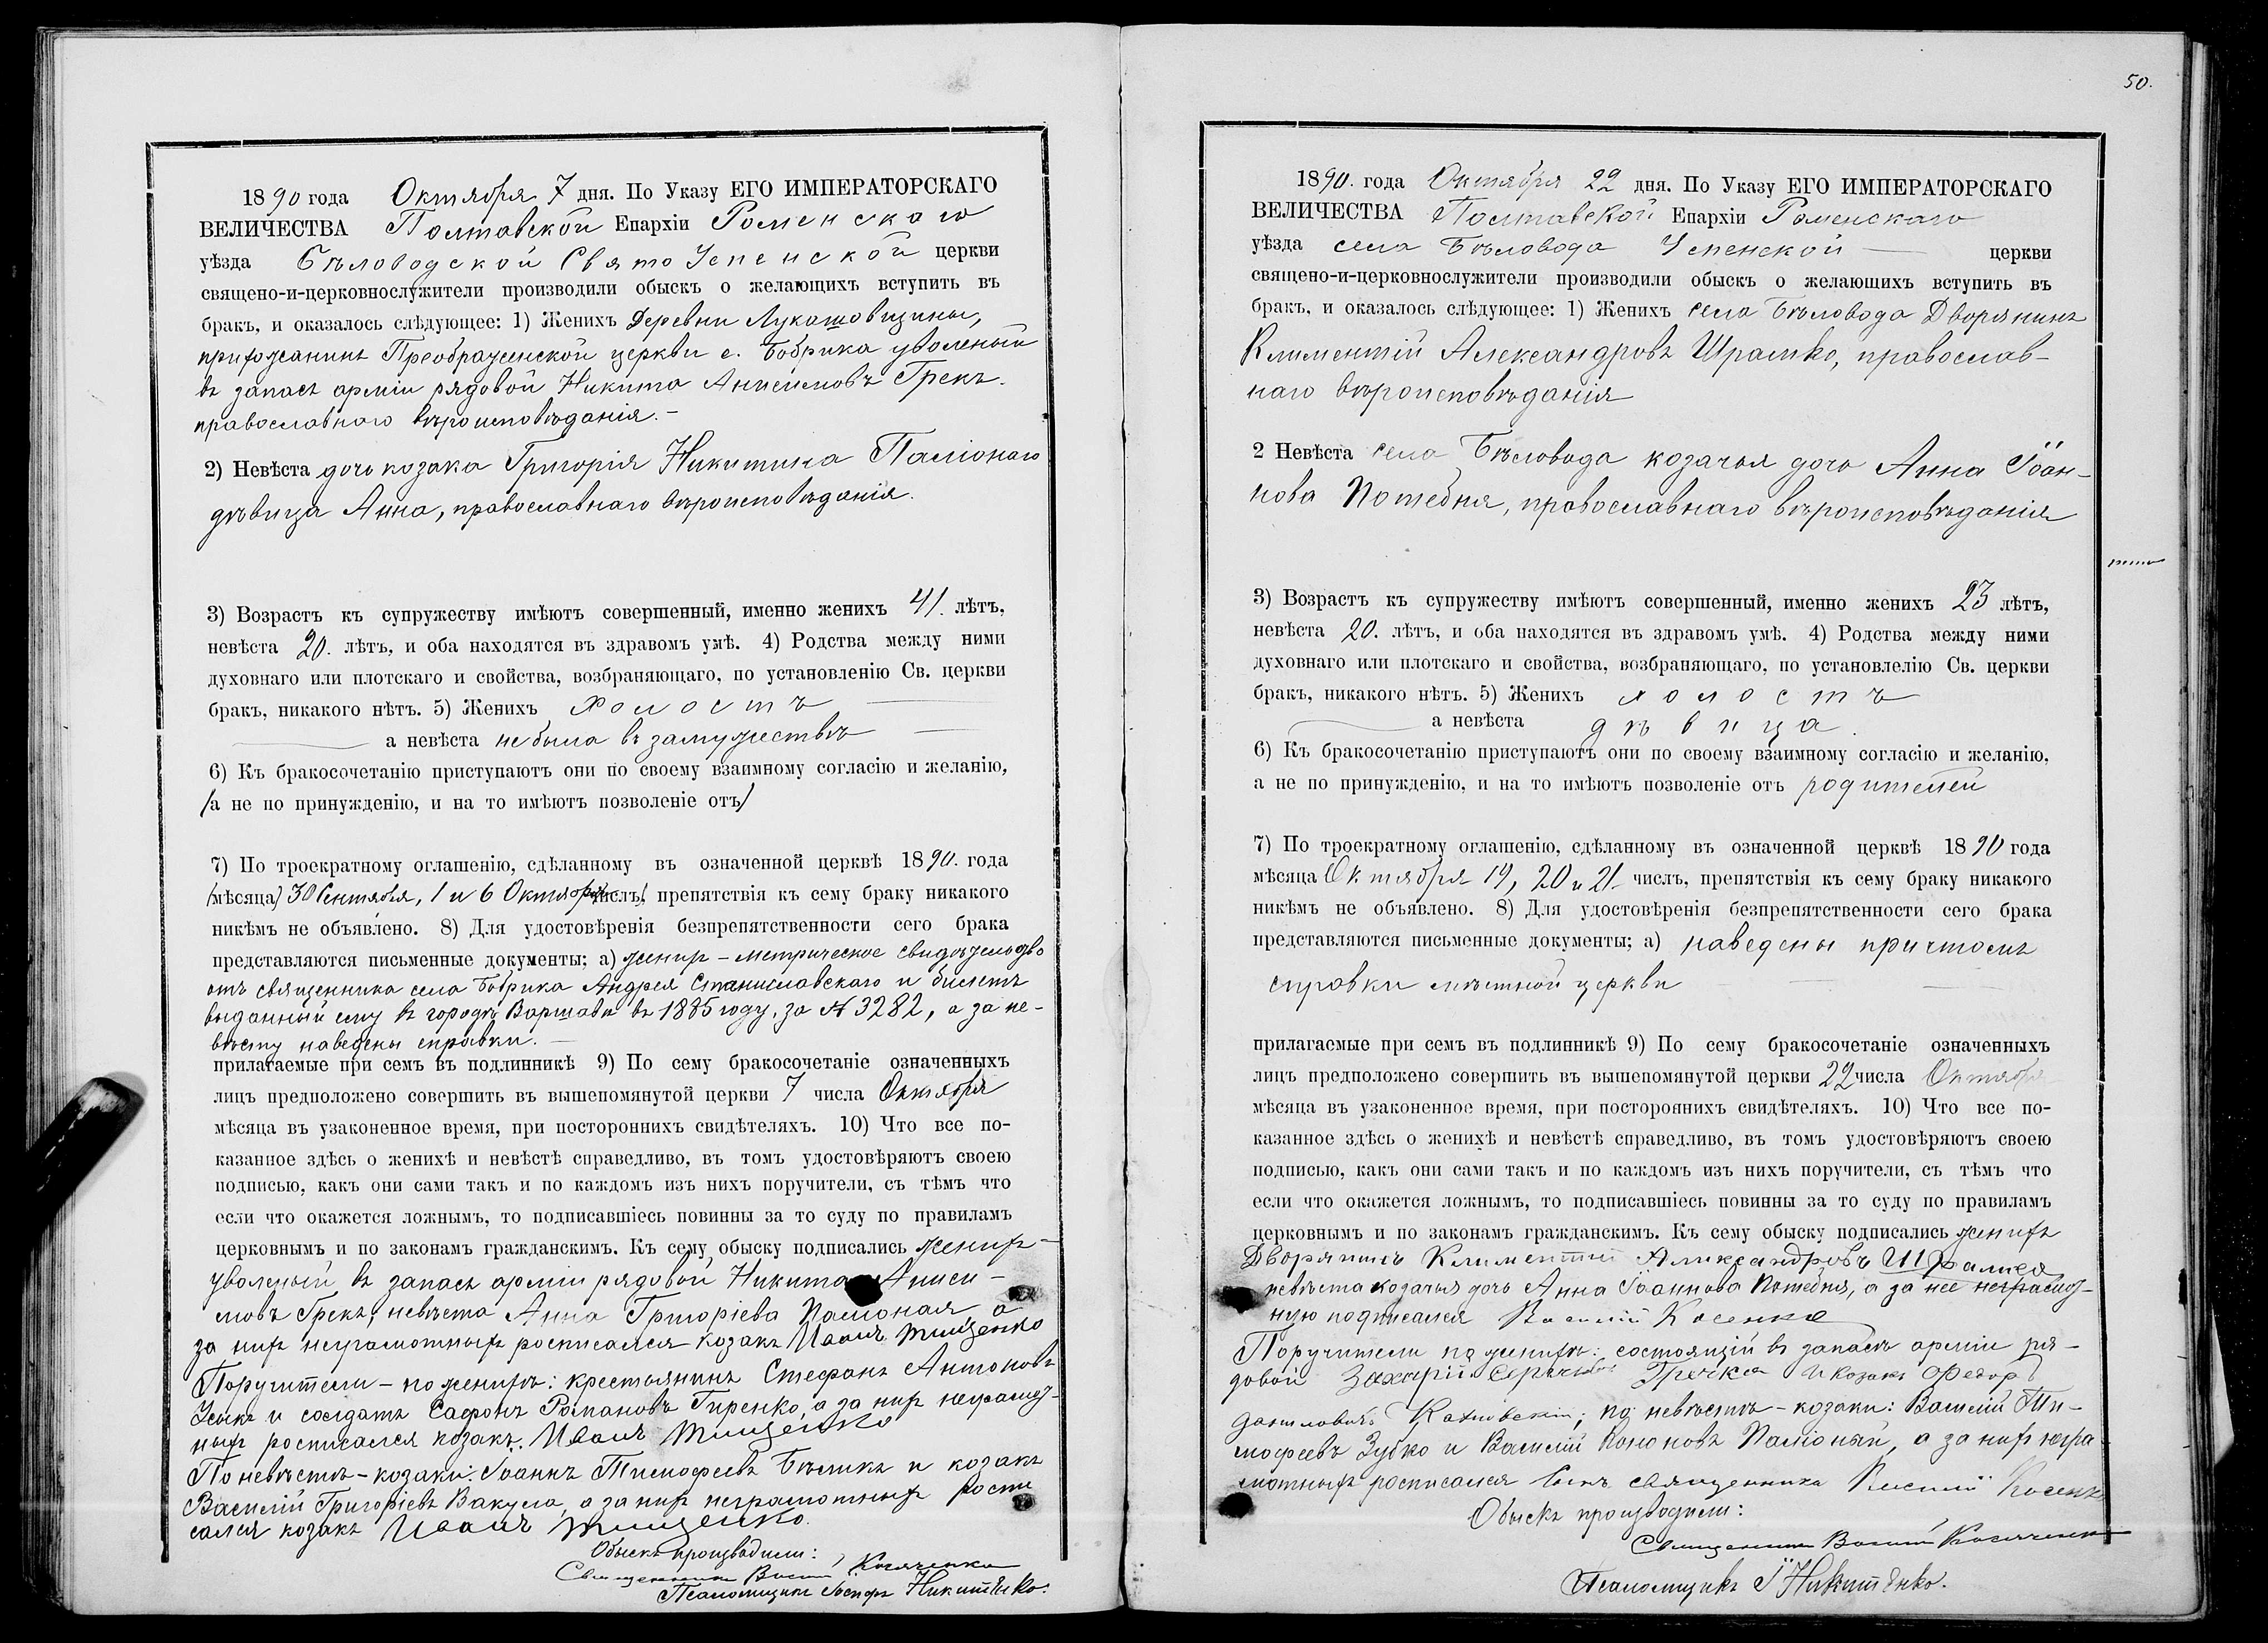 1890 года Октября 7 дня. По Указу ЕГО ИМПЕРАТОРСКАГО
ВЕЛИЧЕСТВА Полтавской Епархіи Роменскаго
уѣзда Бѣловодской Свято Успенской церкви
священо-и-церковнослужители производили обыскъ о желающихъ вступить въ
бракъ, и оказалось слѣдующее: 1) Женихъ Деревни Лукашовщины,
прихожанинъ Преображенской церкви с. Бобрика уволеный
въ запасъ арміи рядовой Никита Анисимовъ Грекъ.
православнаго вѣроисповѣданія. –
2) Невѣста дочь козака Григорія Никитина Паліонаго
дѣвица Анна, православнаго вѣроисповѣданія.
3) Возрастъ къ супружеству имѣютъ совершенный, именно женихъ 41. лѣтъ,
невѣста 20. лѣтъ, и оба находятся въ здравомъ умѣ. 4) Родства между ними
духовнаго или плотскаго и свойства, возбраняющаго, по установленію Св. церкви
бракъ, никакого нѣтъ. 5) Женихъ холостъ
а невѣста не была въ замужествѣ
6) Къ бракосочетанію приступаютъ они по своему взаимному согласію и желанію,
/а не по принужденію, и на то имѣютъ позволеніе отъ/
7) По троекратному оглашенію, сдѣланному въ означенной церквѣ 1890. года
/мѣсяца/ 30 Сентября, 1 и 6 Октября числъ/ препятствія къ сему браку никакого
никѣмъ не объявлено. 8) Для удостовѣренія безпрепятственности сего брака
представляются письменные документы; а) жених – метрическое свидѣтельство
отъ священника села Бобрика Андрея Станиславскаго и билетъ
выданный ему въ городѣ Варшавѣ въ 1885 году, за № 3282, а за не-
вѣсту наведены справки. –
прилагаемые при семъ въ подлинникѣ 9) По сему бракосочетаніе означенныхъ
лицъ предположено совершить въ вышепомянутой церкви 7 числа Октября
мѣсяца въ узаконенное время, при постороннихъ свидѣтеляхъ. 10) Что все по-
казанное здѣсь о женихѣ и невѣстѣ справедливо, въ томъ удостовѣряютъ своею
подписью, какъ они сами такъ и по каждомъ изъ нихъ поручители, съ тѣмъ что
если что окажется ложнымъ, то подписавшіесь повинны за то суду по правиламъ
церковнымъ и по законамъ гражданскимъ. Къ сему обыску подписались жених –
уволеный въ запасъ арміи рядовой Никита Аниси-
мовъ Грекъ, невѣста Анна Григоріева Паліоная а
за них неграмотных росписался козакъ Иванъ Тищенко
Поручители – по жених: крестьянинъ Стефанъ Антоновъ
и солдатъ Сафонъ Романовъ Гиренко, а за них неграмот-
ных росписался козакъ. Иванъ Тищенко
По невѣстѣ – козаки: Іоаннъ Тимофеевъ Бѣликъ и козакъ
Василій Григоріевъ Вакула, а за них неграмотных роспи
сался козакъ Иванъ Тищенко.
Обыскъ производили:
Священникъ Василій Косяченко
Псаломщикъ Іосифъ Никитенко.
50.
1890. года Октября 22 дня. По Указу ЕГО ИМПЕРАТОРСКАГО
ВЕЛИЧЕСТВА Полтавской Епархіи Роменскаго
уѣзда села Бѣловода Успенской церкви
священо-и-церковнослужители производили обыскъ о желающихъ вступить въ
бракъ, и оказалось слѣдующее: 1) Женихъ села Бѣловода Дворянинъ
Климентій Александровъ Шрамко, православ-
наго вѣроисповѣданія
2 Невѣста села Бѣловода козачья дочь Анна Іоан-
нова Потебня, православнаго вѣроисповѣданія
3) Возрастъ къ супружеству имѣютъ совершенный, именно женихъ 23 лѣтъ,
невѣста 20. лѣтъ, и оба находятся въ здравомъ умѣ. 4) Родства между ними
духовнаго или плотскаго и свойства, возбраняющаго, по установлелію Св. церкви
бракъ, никакого нѣтъ. 5) Женихъ холостъ
а невѣста дѣвица.
6) Къ бракосочетанію приступаютъ они по своему взаимному согласію и желанію,
а не по принужденію, и на то имѣютъ позволеніе отъ родителей
7) По троекратному оглашенію, сдѣланному въ означенной церквѣ 1890 года
мѣсяца Октября 19, 20 и 21 числъ, препятствія къ сему браку никакого
никѣмъ не объявлено. 8) Для удостовѣренія безпрепятственности сего брака
представляются письменные документы; а) наведены причтомъ
справки мѣстной церкви
прилагаемые при семъ въ подлинникѣ 9) По сему бракосочетаніе означенныхъ
лицъ предположено совершить въ вышепомянутой церкви 22 числа Октября
мѣсяца въ узаконенное время, при постороннихъ свидѣтеляхъ. 10) Что все по-
казанное здѣсь о женихѣ и невѣстѣ справедливо, въ томъ удостовѣряютъ своею
подписью, какъ они сами такъ и по каждомъ изъ нихъ поручители, съ тѣмъ что
если что окажется ложнымъ, то подписавшіесь повинны за то суду по правиламъ
церковнымъ и по законамъ гражданскимъ. Къ сему обыску подписались женихъ
Дворянинъ Климентій Александровъ Шрамко
невѣста козачья дочь Анна Іоаннова Потебня, а за нее неграмот-
ную подписался Василій Косенко
Поручители по женихѣ: состоящій въ запасѣ арміи ря-
довой Захарій Гречка и козакъ Федоръ
Даниловичъ; по невѣстѣ – козаки: Василій Ти-
мофеевъ Зубко и Василій Кононовъ Паліоный, а за них негра
мотных росписался сынъ священника Василій
Обыскъ производили:
Священникъ Василій Косяченко
Псаломщикъ І Никитенко.